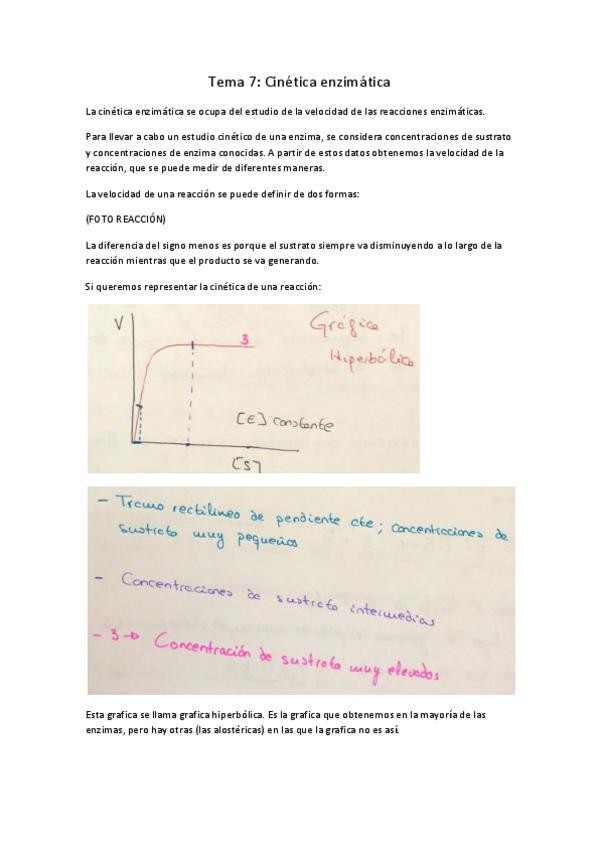 Tema 7: Cinética enzimática
La cinética enzimática se ocupa del estudio de la velocidad de las reacciones enzimáticas.
Para llevar a cabo un estudio cinético de una enzima, se considera concentraciones de sustrato
y concentraciones de enzima conocidas. A partir de estos datos obtenemos la velocidad de la
reacción, que se puede medir de diferentes maneras.
La velocidad de una reacción se puede definir de dos formas:
(FOTO REACCIÓN)
La diferencia del signo menos es porque el sustrato siempre va disminuyendo a lo largo de la
reacción mientras que el producto se va generando.
Si queremos representar la cinética de una reacción:
V
3
Gráfica
Hiperbólica
[E] constante
[S]
- Tramo rectilineo de pendiente cte; concentraciones de
sustrato muy pequeños
- Concentraciones de sustrato intermedias
- 3 → Concentración de sustrato muy elevados
Esta grafica se llama grafica hiperbólica. Es la grafica que obtenemos en la mayoría de las
enzimas, pero hay otras (las alostéricas) en las que la grafica no es así.